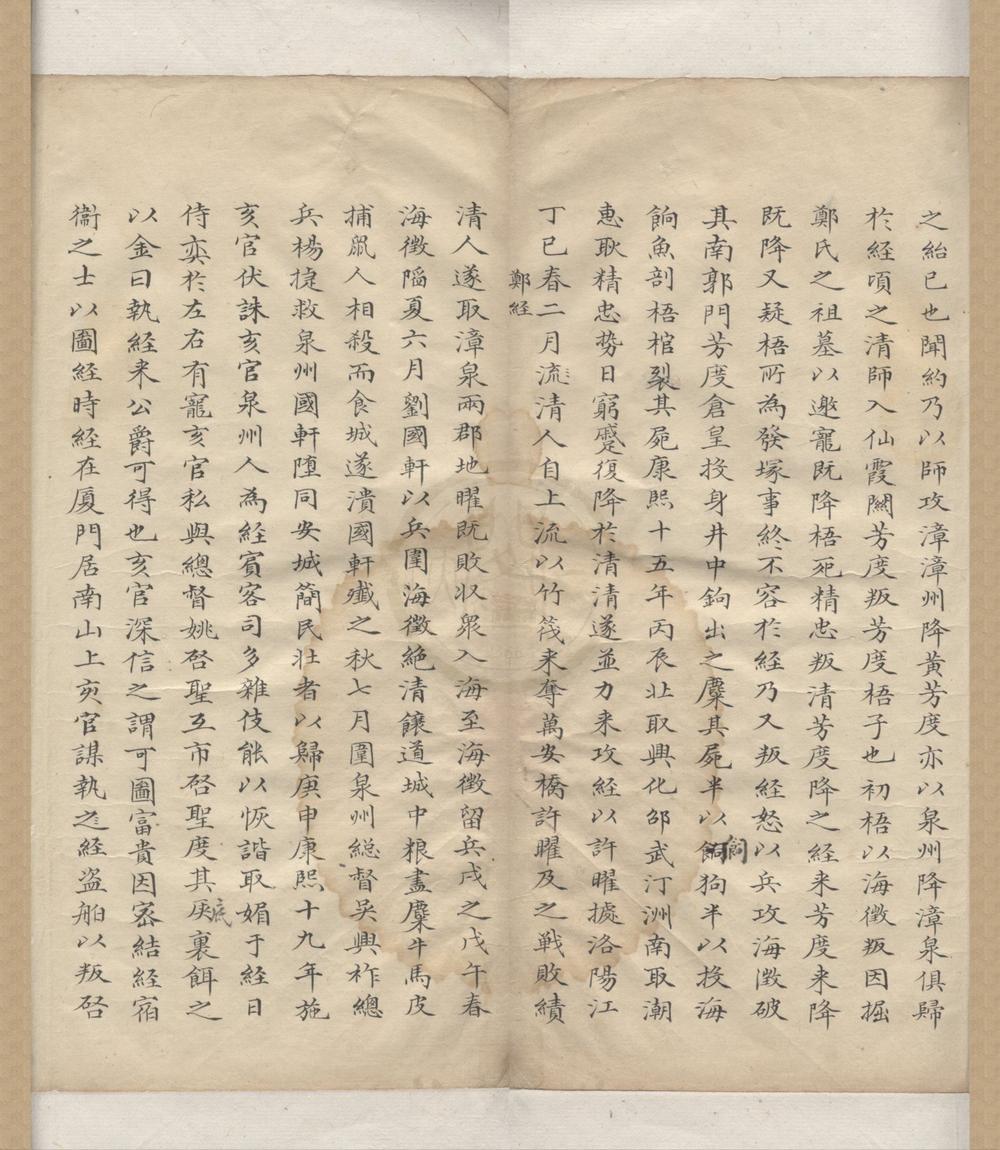 之紿已也聞約乃以師攻漳漳州降黃芳度亦以泉州降漳泉俱歸
於經頃之清師入仙霞關芳度叛芳度梧子也初梧以海徵叛因掘
鄭氏之祖墓以邀寵既降梧死精忠叛清芳度降之經来芳度来降
既降又疑梧所為發塚事終不容於經乃又叛經怒以兵攻海澂破
其南郭門芳度倉皇投身井中鉤出之麋其屍半以餇狗半以投海
飼
餉魚剖梧棺裂其屍康熙十五年丙辰北取興化邵武汀洲南取潮
惠耿精忠势日窮蹙復降於清清遂並力来攻經以許曜據洛陽江
丁巳春二月流清人自上流以竹筏来奪萬安橋許曜及之戦敗績
鄭經
清人遂取漳泉兩郡地曜既敗収衆入海至海徵留兵戍之戊午春
海徵陷夏六月劉國軒以兵圍海徵絶清饟道城中粮盡麋牛馬皮
捕鼠人相殺而食城遂潰國軒殲之秋七月圍泉州総督吳興祚總
兵楊捷救泉州國軒堕同安城簡民壯者以歸庚申康熙十九年施
亥官伏誅亥官泉州人為經賓客司多雜伎能以恢諧取媚于經日
侍奕於左右有寵亥官私與總督姚啓聖互市啓聖度其戾裏餌之
底
以金曰執經来公爵可得也亥官深信之謂可圖富貴因宻結經宿
衞之士以圖經時經在厦門居南山上亥官謀執之經盗舶以叛啓